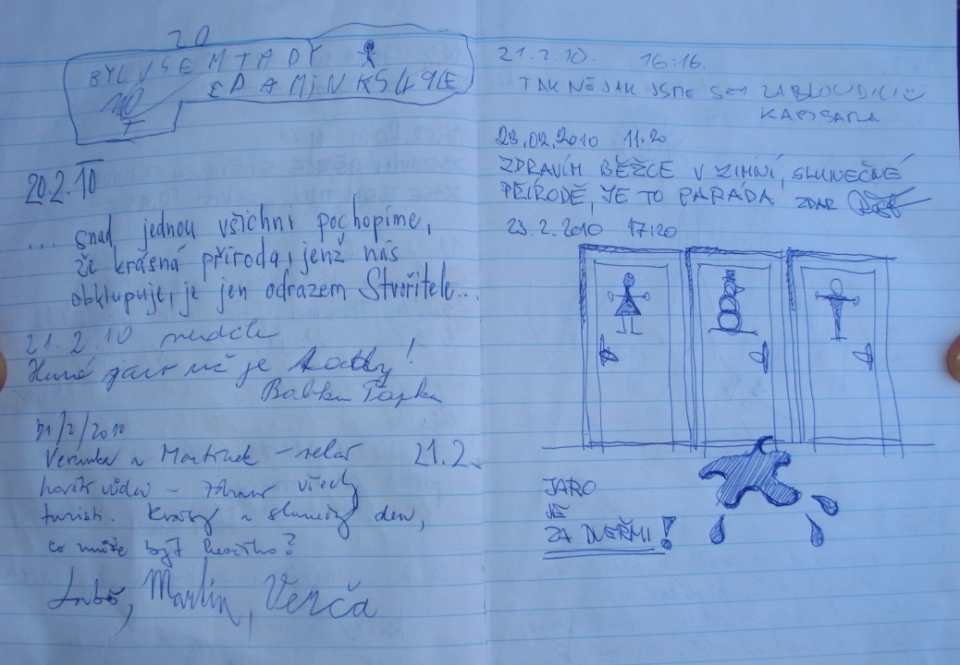 20
BYL JSEM TADY
20.2.10
... snad jednou všichni pochopíme,
že krásná příroda, jenž nás
obklopuje, je jen odrazem Stvořitele...
21.2.10 neděle
už je !
Babka Ťapka
21/2/2010
Verunka a Martínek – relax
21.2.
všechny
turisti. Krásný a slunečný den,
co může být hezčího?
Luboš, Martin, Verča
21.2.10. 16:16.
TAK NĚJAK JSME SEM ZABLOUDILI
23.02.2010 11:20
ZDRAVÍM BĚŽCE V ZIMNÍ, SLUNEČNÉ
PŘÍRODĚ, JE TO PARÁDA ZDAR
23.2.2010 17:20
JARO
JE
ZA DVEŘMI!